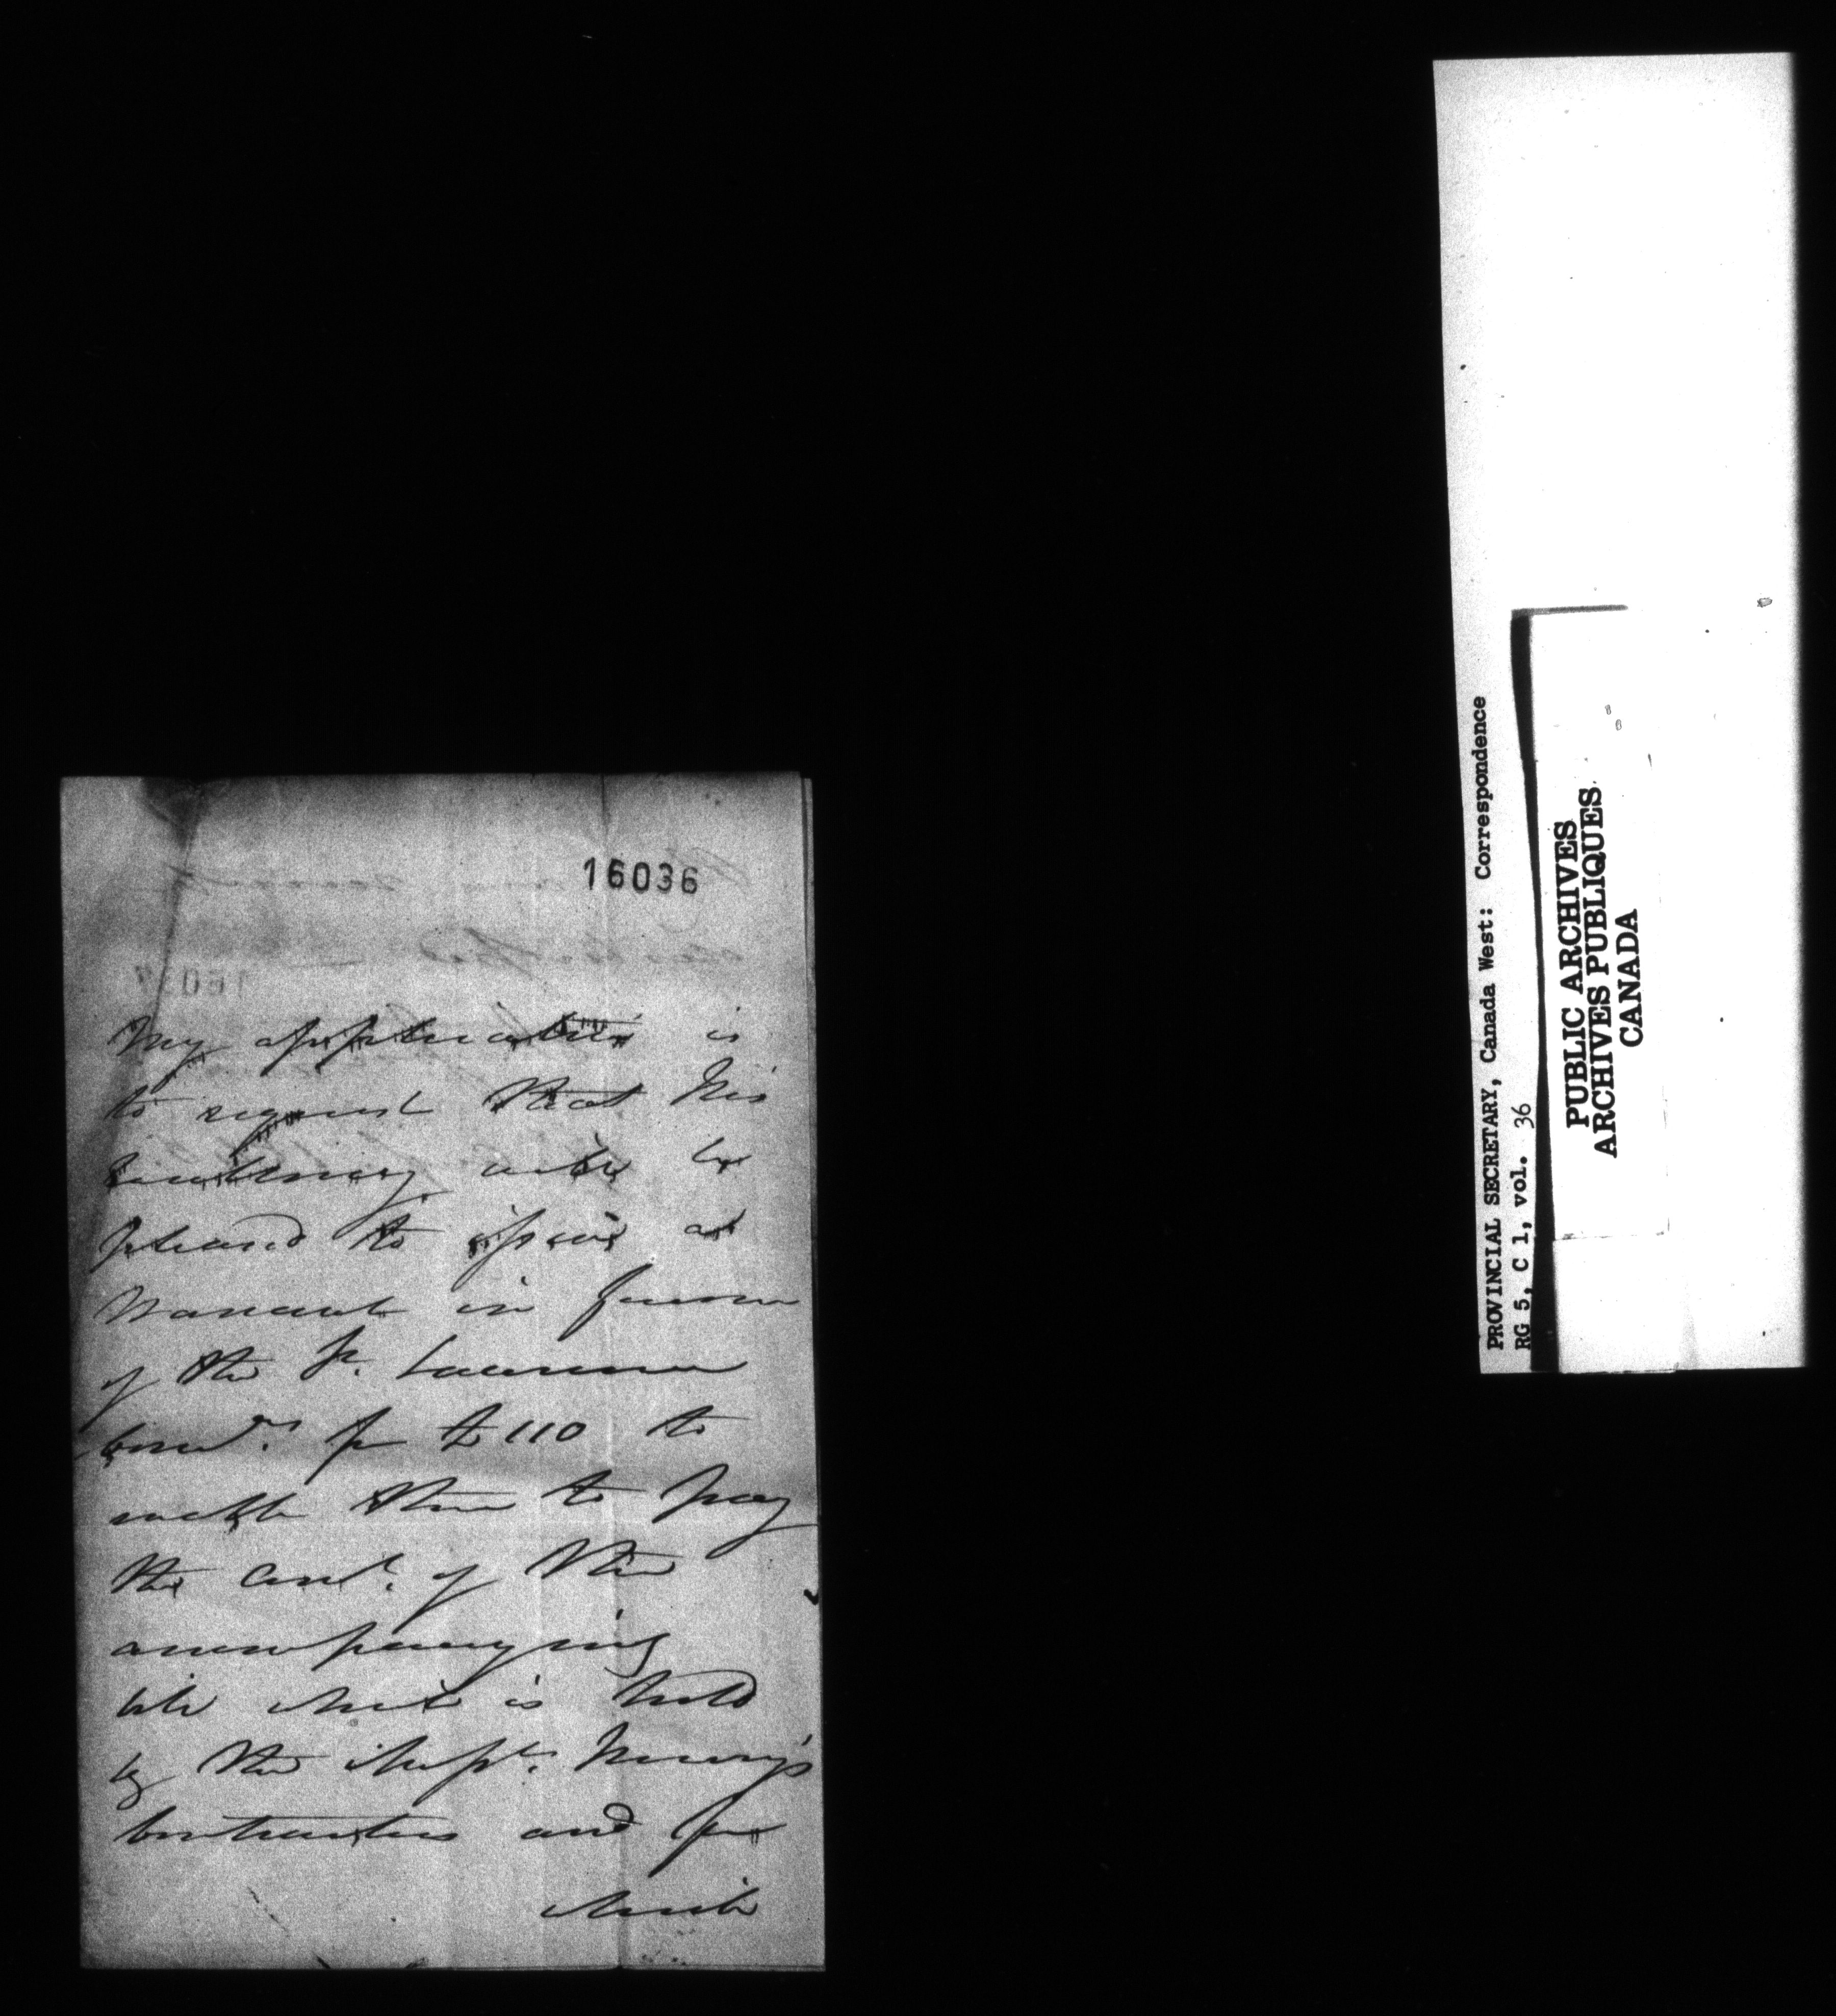 16036
My application is
to request that his
Excellency will be
pleased to issue a
Warrant in favor
of the St. Lawrence
Comrs. for £110 to
enable them to pay
the Amt. of the
accompanying
bile which is held
by the
Contractors and for
which
PROVINCIAL SECRETARY, Canada West: Correspondence
RG 5, C 1, vol. 36
PUBLIC ARCHIVES
ARCHIVES PUBLIQUES
CANADA